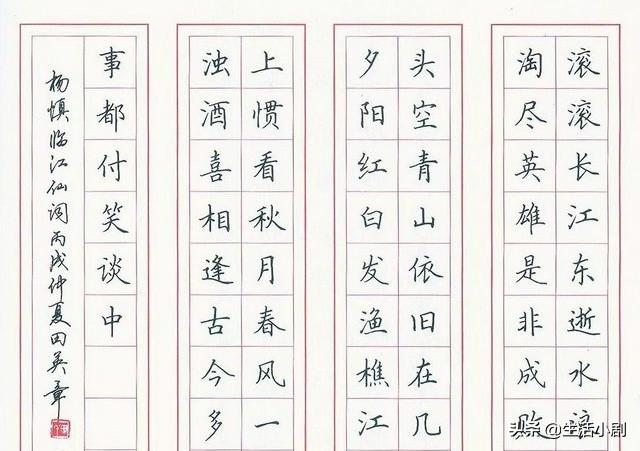 滚滚长江东逝水浪
淘尽英雄是非成败
头空青山依旧在几
夕阳红白发渔樵江
上惯看秋月春风一
浊酒喜相逢古今多
事都付笑谈中
杨慎临江仙词丙戌仲夏田英章
头条 @生活小剧